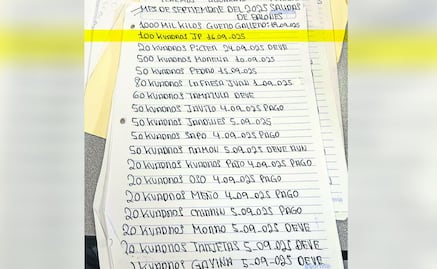 MES DE SEPTIEMBRE DEL 2025 SALIDAS
DE
1000 MIL KILOS GUERO GALLERO:
100 KUADROS JP 16.09.025
20 KUADROS PICTER 24.09.025 DEVE
500 KUADROS MORELIA 10.09.025
50 KUADROS PEDRO 15.09.025
80 KUADROS JUAN 1.09.025
60 KUADROS DEVE
50 KUADROS JAVITO 4.09.025 PAGO
50 KUADROS 5.09.025
50 KUADROS SAPO 4.09.025 PAGO
50 KUADROS RAMON 5.09.025 DEVE
20 KUADROS KUADROS PATO 4.09.025 PAGO
20 KUADROS OSO 4.09.025 PAGO
20 KUADROS MEÑO 4.09.025 PAGO
20 KUADROS 5.09.025 PAGO
20 KUADROS 5.09.025 DEVE
20 KUADROS TARJETAS 5.09.025 DEVE
KUADROS GAVINA 5.09.025 DEVE